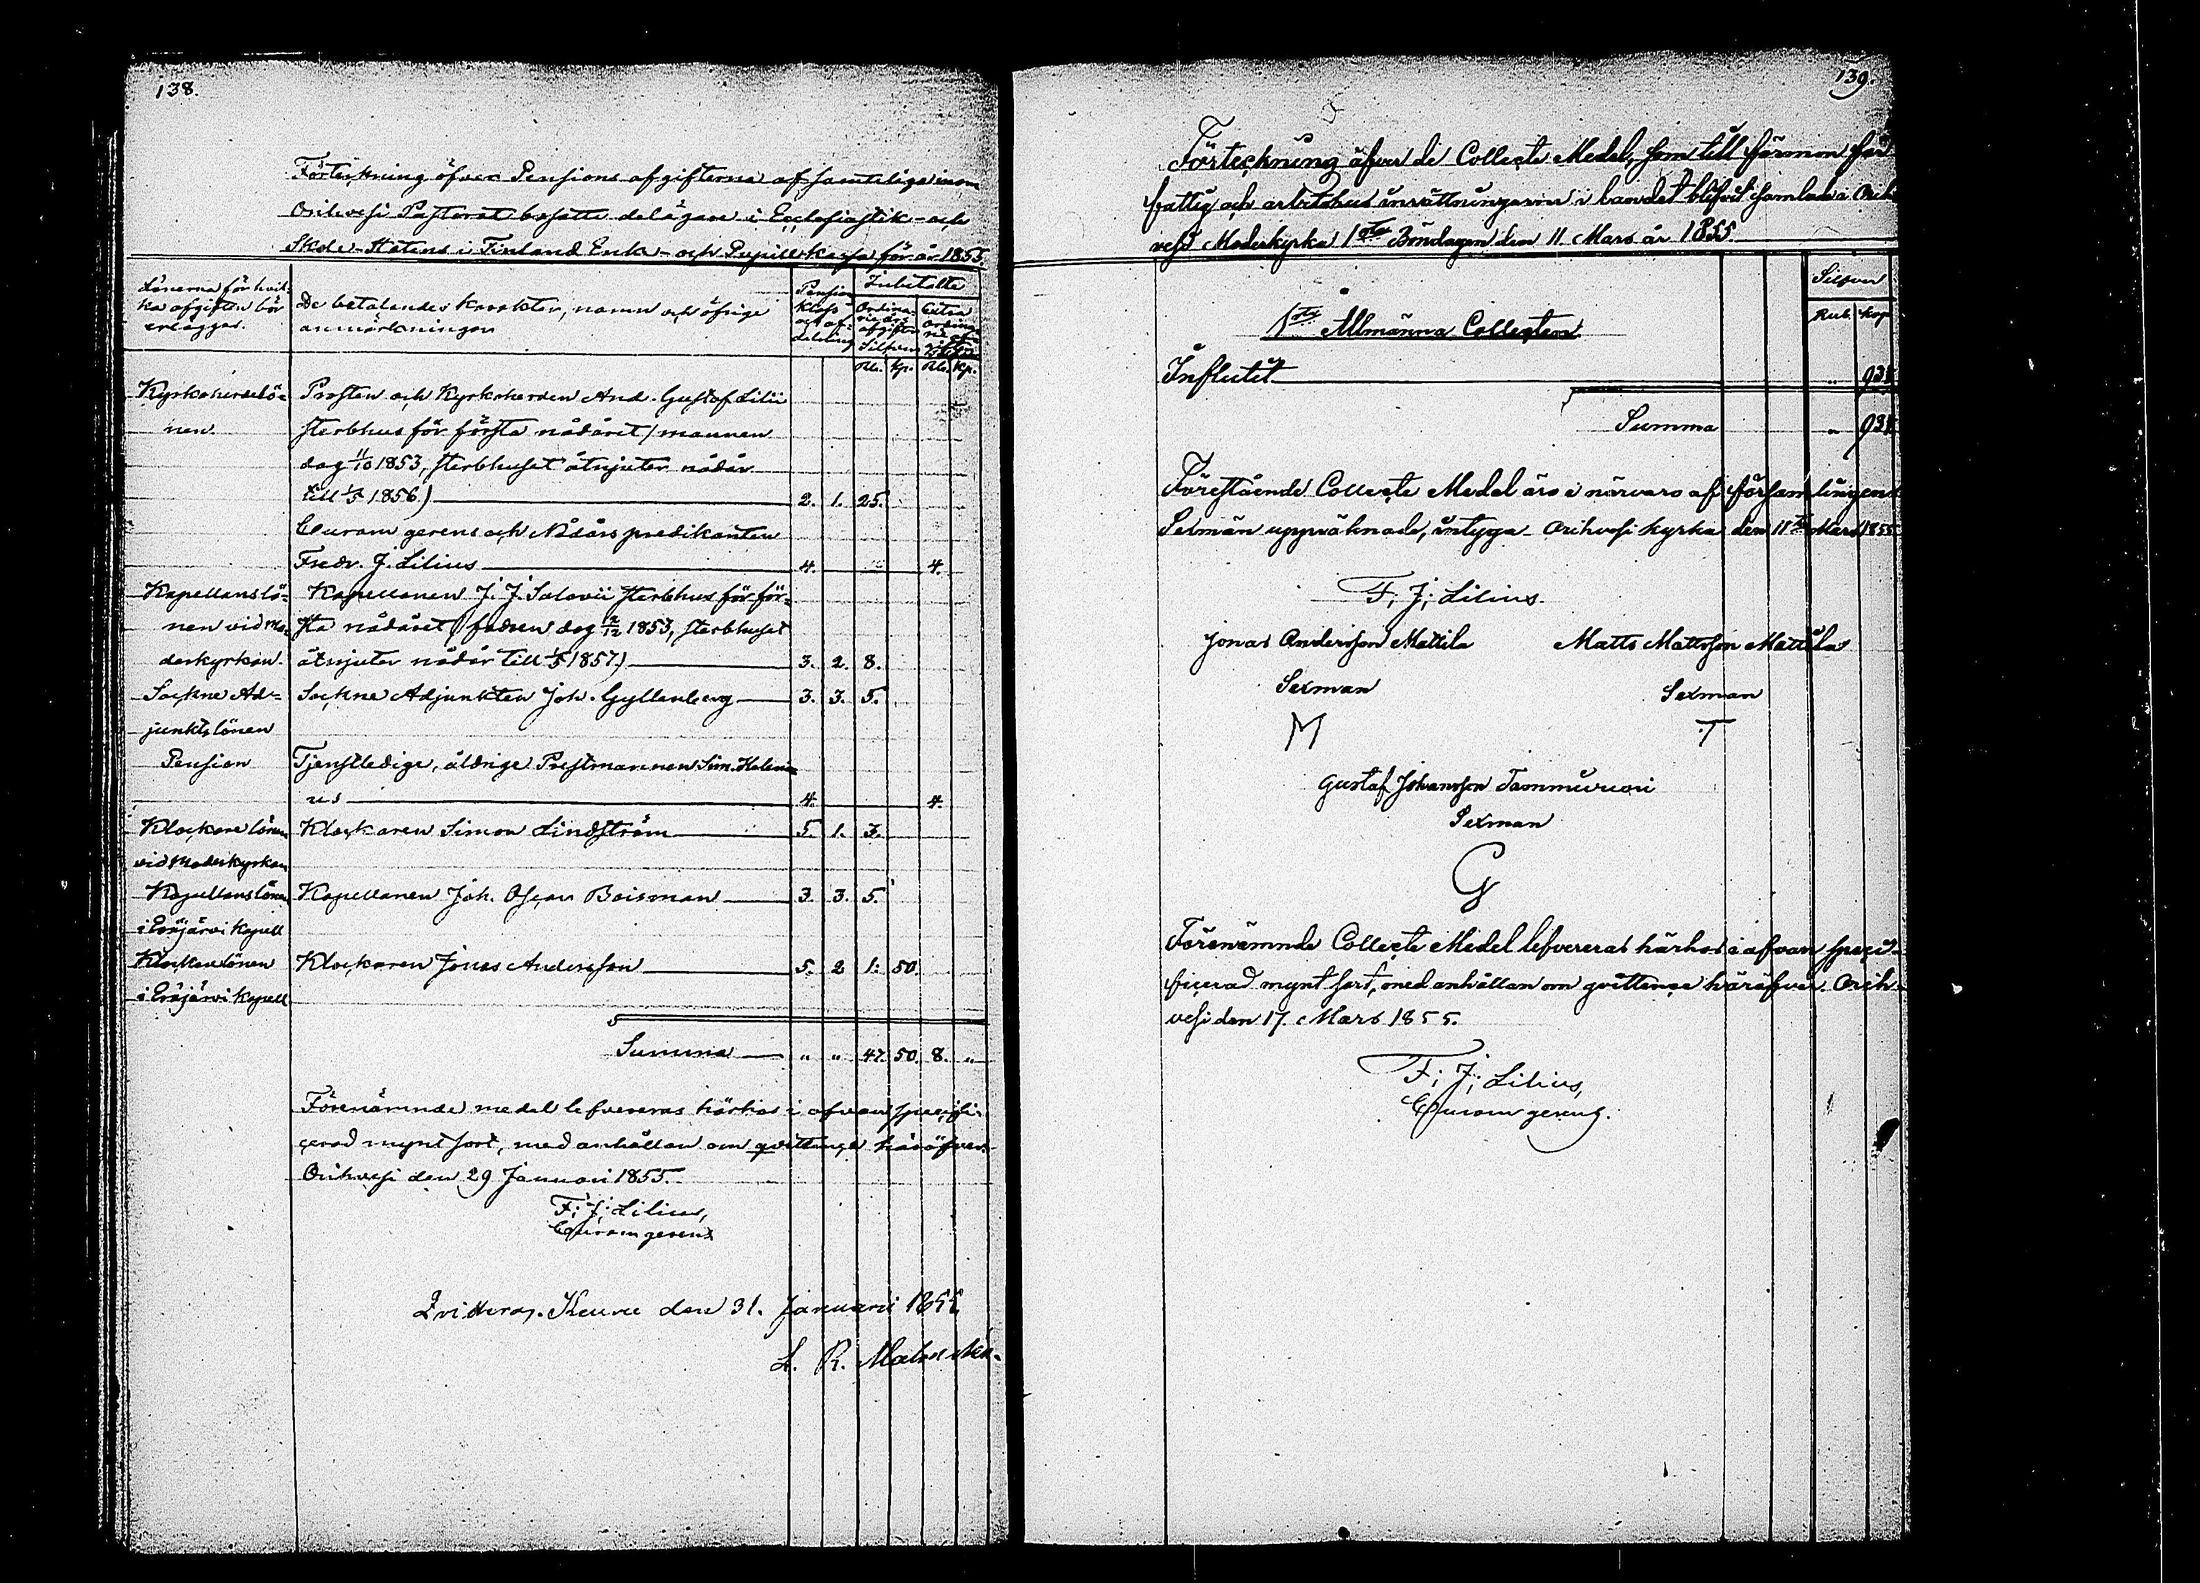 138.
Förteckning öfver Pensions afgifterna af samtelige inom
Orihvesi Pastorat besatte delägare i Ecclesiastik- och
Skole-Statens i Finland Enke- och Pupill Kassa för år 1855.
Lönerna för hvil-
ka afgiften bör
erläggas.
De betalandes karakter, namn och öfrige
anmärkningar
Pensions
Klass
och af-
delning
Inbetalte
Ordina-
rie års
afgifter
Silfver
Extra
ordina-
rie af-
gifter
Rub. Kp. Rub. Kp.
Kyrkoherdelö- Prosten och Kyrkoherden And. Gustaf Lilii
nen. sterbhus för första nådåret (mannen
dog 11/10 1853, sterbhuset åtnjuter nådår
till 1/5 1856.) 2. 1. 25.
Curam gerens och Nådårs predikanten
Fredr. J. Lilius 4. 4.
Kapellanslö- Kapellanen J. J. Salovii sterbhus för för-
nen vid Mo- sta nådåret (fadren dog 2/12 1853, sterbhuset
derkyrkan. åtnjuter nådår till 1/5 1857.) 3. 2. 8.
Sockne Ad- Sockne Adjunkten Joh. Gyllenberg 3. 3. 5.
junktslönen
Pension Tjenstledige, åldrige Prestmannen Sim. Heleni-
us 4. 4.
Klockare lönen Klockaren Simon Lindström 5. 1. 3.
vid Moderkyrkan
Kapellanslönen Kapellanen Joh. Oscar Boisman 3. 3. 5.
i Eräjärvi Kapell
Klockarelönen Klockaren Jonas Andersson 5. 2 1. 50
i Eräjärvi Kapell
Summa " " 47. 50. 8. "
Förenämnde medel lefvereras härhos i ofvan specifi-
cerad mynt sort, med anhållan om qvittence häröfver.
Orihvesi den 29 Januari 1855.
F. J. Lilius,
Curam gerens
Qvitteras. Keuru den 31. Januarii 1855
L. R.
139.
Förteckning öfver de Collecte Medel, som till förmon för
fattig och arbetshus inrättningarna i landet blifvit samlade i Orih-
vesi Moderkyrka 1sta Böndagen den 11 Mars år 1855.
Silfver
Rub. Kop
1sta Allmänna Collecten.
Influtit " 93
Summa " 93
Förestående Collecte Medel äro i närvaro af församlingens
Sexmän uppräknade, intyga Orihvesi kyrka den 11te Mars 1855
F. J. Lilius.
Jonas Andersson Mattila Matts Mattsson Mattila
Sexman Sexman
M T
Gustaf Johansson Tammivuori
Sexman
G
Förenämnde Collecte Medel lefvereras härhos i ofvan speci-
ficerad mynt sort, med anhållan om qvittence häröfver. Orih-
vesi den 17. Mars 1855.
F. J. Lilius,
Curam gerens.